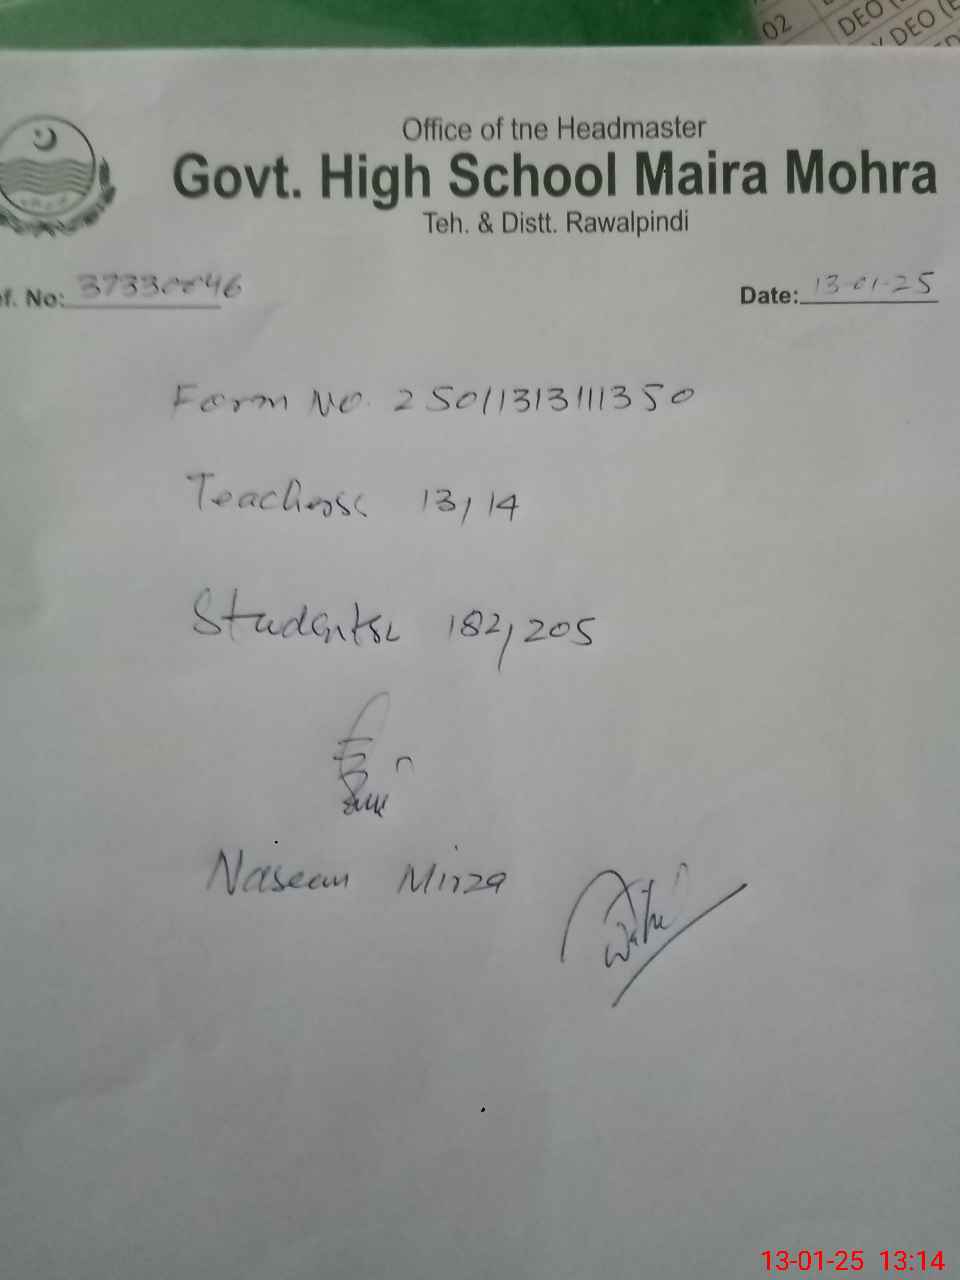 02
DEO (
DEO (E
Office of tne Headmaster
Govt. High School Maira Mohra
Teh. & Distt. Rawalpindi
f. No: 37330046
Date: 13-01-25
Form No. 25011313111350
Teachers: 13/14
Students: 182/205
Naseem Mirza
13-01-25 13:14